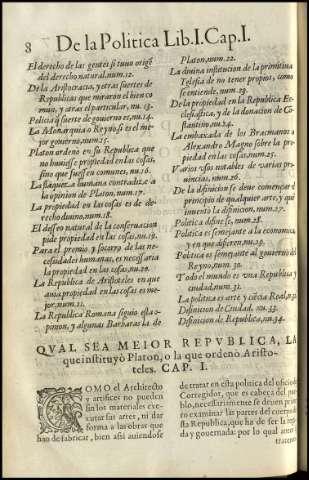 8 De la Politica Lib.I.Cap.I.
El derecho de las gentes si tuuo origẽ
del derecho natural.num.12.
De la Aristocracia, y otras suertes de
Republicas que miraron el bien co
mun, y otras el particular, nu. 13.
Policia q̃ suerte de gouierno es, nu.14.
La Monarquia o Reyno, si es el me-
jor gouierno, num.15.
Platon ordenò en su Republica que
no huuiesse propiedad en las cosas,
sino que fuessen comunes, nu.16.
La flaqueza humana contradize a
la opinion de Platon, num.17.
La propiedad en las cosas es de de-
recho diuino, num.18.
El desseo natural de la conseruacion
pide propiedad en las cosas, nu.19.
Para el premio, y socorro de las ne-
cessidades humanas, es necessaria
la propiedad en las cosas, nu.20.
La Republica de Aristoteles en que
auia propiedad en las cosas es me-
jor, num.21.
La Republica Romana siguio esta o-
pinion, y algunas Barbaras la de
Platon, num.22.
La diuina institucion de la primitiua
Iglesia de no tener propios, como
se entiende, num.23.
De la propiedad en la Republica Ec-
clesiastica, y de la donacion de Co-
stantino, nu.24.
La embaxada de los Bracmanas a
Alexandro Magno sobre la pro-
piedad en las cosas, num.25.
Varios vsos notables de varias pro
uincias, num.26.
De la difinicion se deue començar el
principio de qualquier arte, y que
inuentò la difinicion, num.27.
Politica difinese, num.28.
Politica es semejante a la economica
y en que difieren, nu.29.
Politica es semejante al gouierno del
Reyno, num. 30.
Todo el mundo es vna Republica y
ciudad, num.31.
La politica es arte y ciẽcia Real, n.32.
Definicion de Ciudad, nu. 33.
Difinicion de Republica, nu.34.
QVAL SEA MEIOR REPVBLICA, LA
que instituyò Platon, o la que ordenò Aristo-
teles. CAP. I.
COMO el Architecto
y artifices no pueden
sin los materiales exe-
cutar sus artes, ni dar
forma a las obras que
han de fabricar, bien assi auiendose
de tratar en esta politica del oficio de
Corregidor, que es cabeça del pue-
blo, necessariamente se deuen prime
ro examinar las partes del cuerpo de
sta Republica, que ha de ser la regi-
da y gouernada: por lo qual auemos